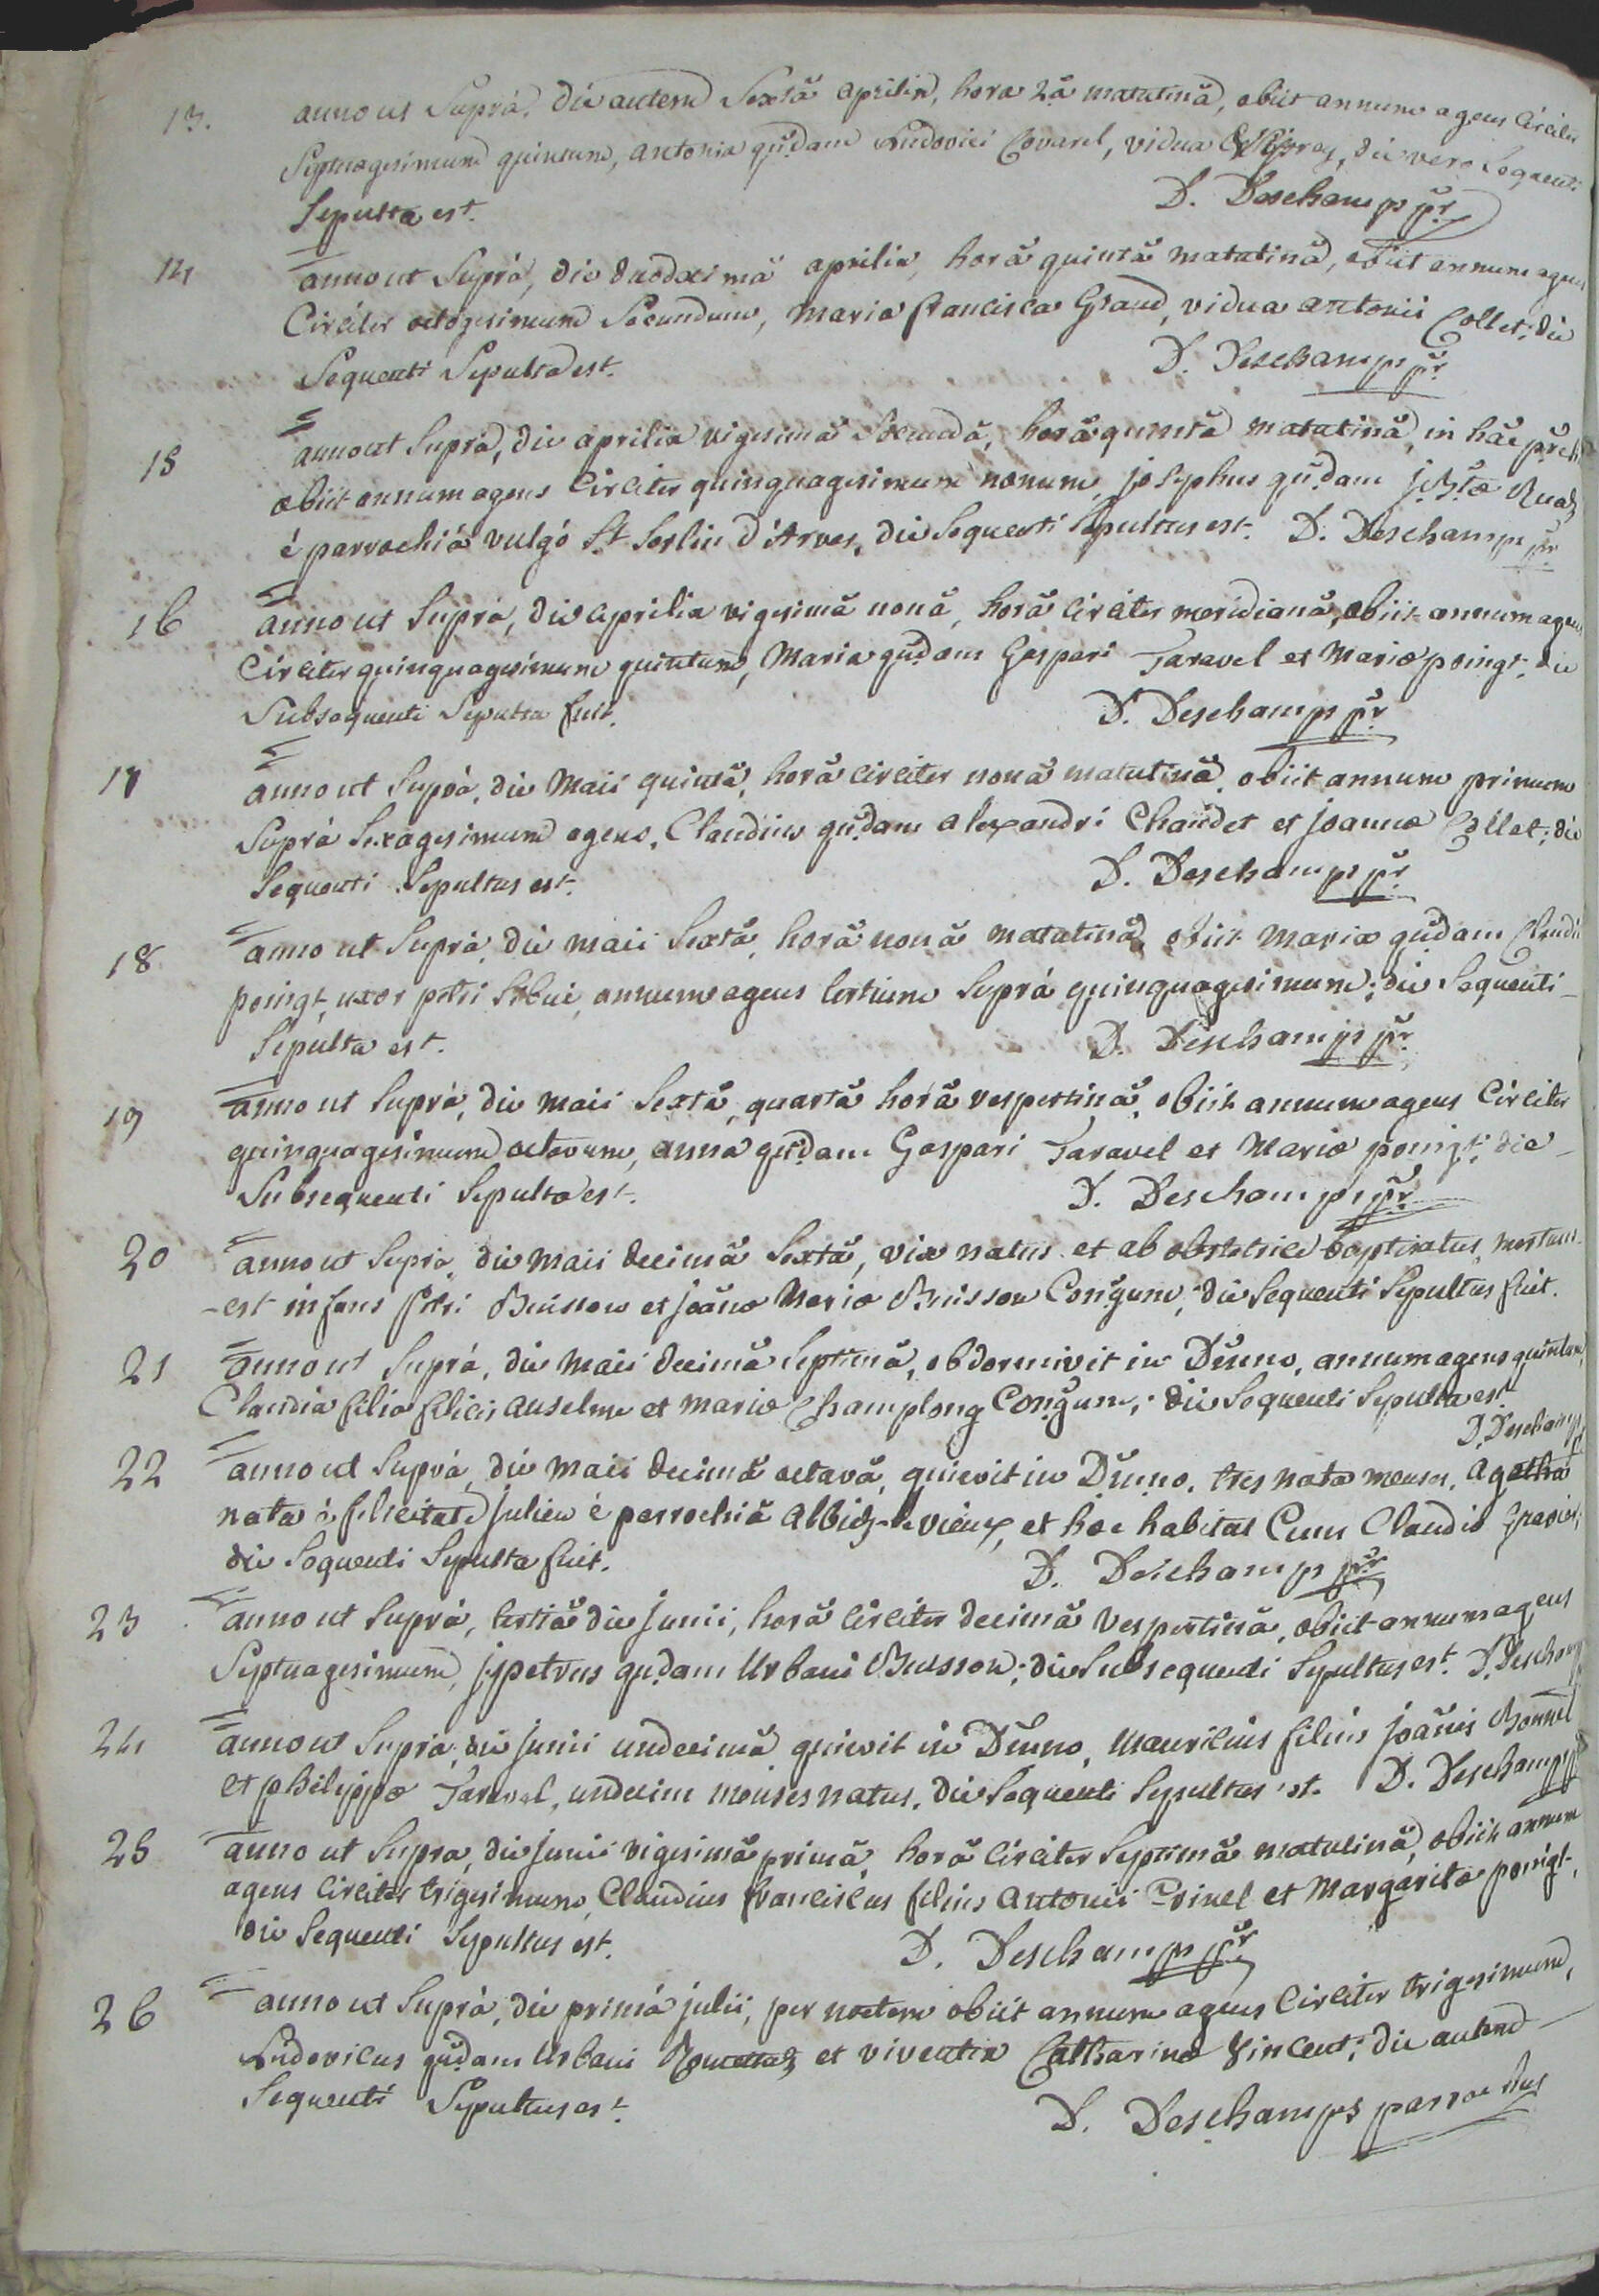 13. anno ut Suprà, die autem Sextâ aprilis, hora 2â matutinâ, obiit annum agens Circiter
Septuagesimum quintum, antonia qūdam Ludovici Covarel, vidua die vero Sequenti
Sepulta est. D. Deschamps pr̄
14 anno ut Suprà, die duodecimâ aprilis, horâ quintâ matutinâ, obiit annum agens
Circiter octogesimum Secundum, Maria francisca Graud, vidua antonii Collet; die
Sequenti Sepulta est. D. Deschamps pr̄
15 anno ut Suprà, die aprilis vigesimâ Secundâ, horâ quintâ matutinâ, in hâc
obiit annum agens Circiter quinquagesimum nonum, josephus qūdam
è parrochiâ vulgò St Sorlin d'Arves, die Sequenti Sepultus est. D. Deschamps pr̄
16 anno ut Suprà, die aprilis vigesimâ nonâ, horâ Circiter meridianâ, obiit annum agens
Circiter quinquagesimum quintum, Maria qūdam Gaspari Taravel et Mariæ poingt, die
Subsequenti Sepulta fuit. D. Deschamps pr̄
17 anno ut Suprà, die Maii quintâ, horâ circiter nonâ matutinâ, obiit annum primum
Suprà Sexagesimum agens, Claudius qūdam alexandri Chaudet et joannæ Collet; die
Sequenti Sepultus est. D. Deschamps pr̄
18 anno ut Suprà, die maii Sextâ, horâ nonâ matutinâ, obiit Maria qūdam Claudii
poingt, uxor petri annum agens tertium Suprà quinquagesimum; die Sequenti
Sepulta est. D. Deschamps pr̄
19 anno ut Suprà, die maii Sextâ, quartâ horâ vespertinâ, obiit annum agens Circiter
quinquagesimum octavum, anna qūdam Gaspari Taravel et Mariæ poingt; die
Subsequenti Sepulta est. D. Deschamps pr̄
20 anno ut Suprà, die Maii decimâ Sextâ, vix natus et ab obstetrice baptisatus, mortuus
est infans petri Buisson et joānæ Mariæ Buisson Conğum; die Sequenti Sepultus fuit.
21 anno ut Suprà, die Maii decimâ Septimâ, obdormivit in Dn̄no, annum agens quintum,
Claudia filia felicis anselme et mariæ Champlong Conğum; die Sequenti Sepulta est
D. Deschamps
22 anno ut Suprà, die Maii decimâ octavâ, quievit in Dn̄no, tres nata menses, agatha
nata è felicitate julien è parrochiâ Albiez-le vieux, et hæc habitat Cum Claudio
die Sequenti Sepulta fuit. D. Deschamps pr̄
23 anno ut Suprà, tertiâ die junii, horâ Circiter decimâ vespertinâ, obiit annum agens
Septuagesimum, j. petrus qūdam Urbani Buisson; die Subsequenti Sepultus est. D. Deschamps
24 anno ut Suprà, die junii undecimâ quievit in Dn̄no, Mauricius filius joānis Bonnel
et philippæ Taravel, undecim menses natus, die Sequenti Sepultus est. D. Deschamps
25 anno ut Supra, die junii vigesimâ primâ, horâ Circiter Septimâ matutinâ, obiit annum
agens Circiter trigesimum, Claudius franciscus filius antonii Crinel et Margaritæ poingt,
die Sequenti Sepultus est. D. Deschamps pr̄
26 anno ut Suprà, die primâ julii, per noctem obiit annum agens Circiter trigesimum,
Ludovicus qūdam Urbani et viventis Catharinæ Vincent; die autem
Sequenti Sepultus est. D. Deschamps parrochus